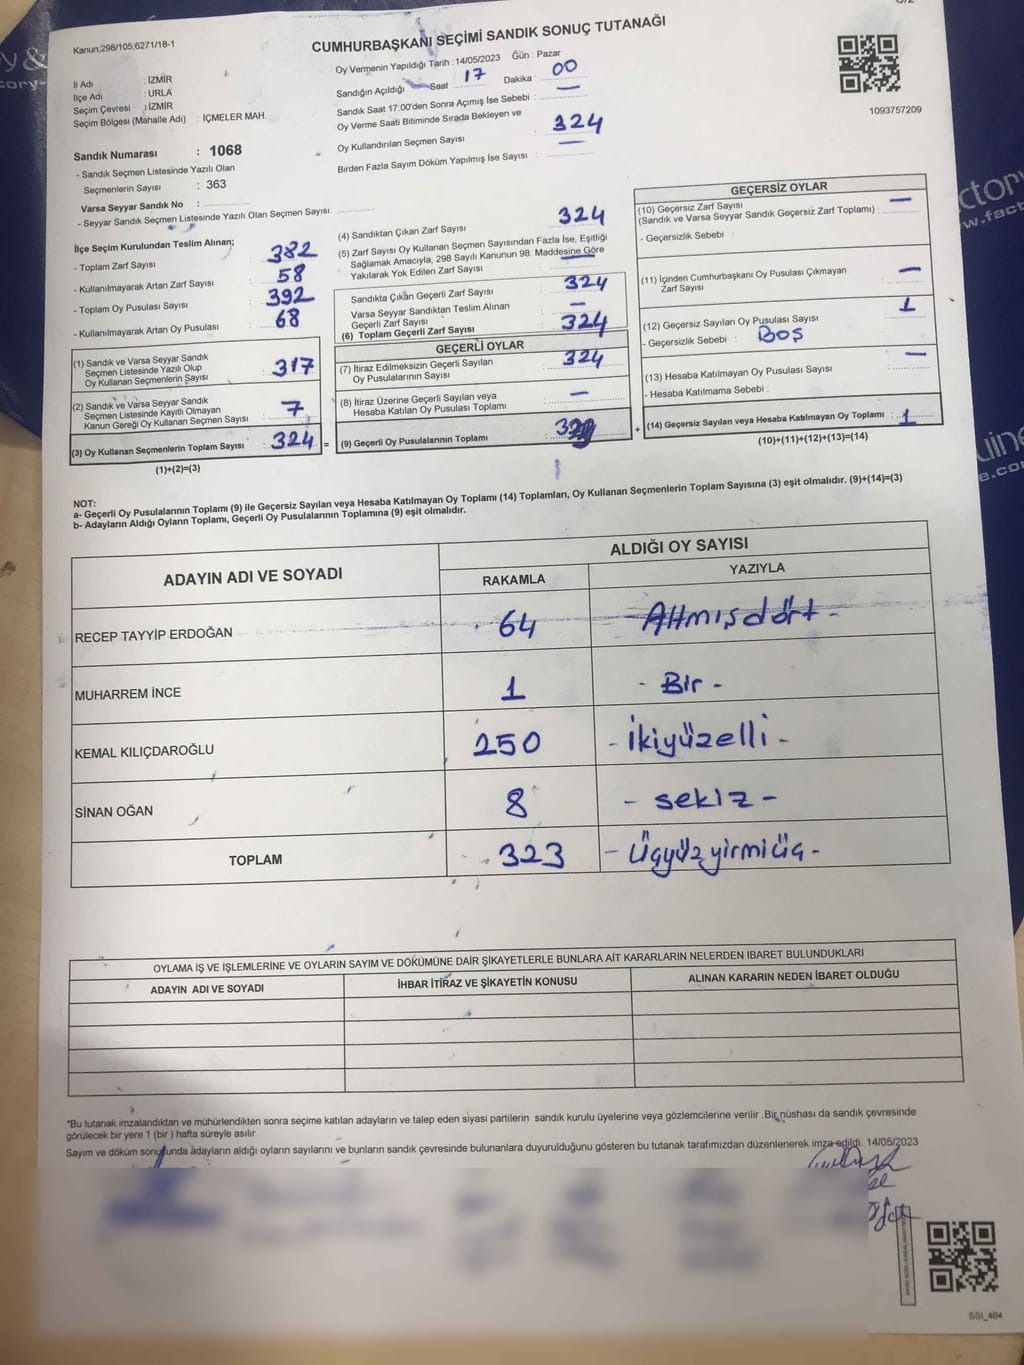 Kanun;298/105;6271/18-1
CUMHURBAŞKANI SEÇİMİ SANDIK SONUÇ TUTANAĞI
1093757209
İl Adı : İZMİR
İlçe Adı : URLA
Seçim Çevresi : İZMİR
Seçim Bölgesi (Mahalle Adı) : İÇMELER MAH.
Sandık Numarası : 1068
- Sandık Seçmen Listesinde Yazılı Olan
Seçmenlerin Sayısı : 363
Varsa Seyyar Sandık No :
- Seyyar Sandık Seçmen Listesinde Yazılı Olan Seçmen Sayısı:
Oy Vermenin Yapıldığı Tarih : 14/05/2023 Gün : Pazar
Sandığın Açıldığı Saat 17 Dakika : 00
Sandık Saat 17:00'den Sonra Açımış İse Sebebi : —
Oy Verme Saati Bitiminde Sırada Bekleyen ve
Oy Kullandırılan Seçmen Sayısı : 324
Birden Fazla Sayım Döküm Yapılmış İse Sayısı : —
İlçe Seçim Kurulundan Teslim Alınan;
- Toplam Zarf Sayısı : 382
- Kullanılmayarak Artan Zarf Sayısı : 58
- Toplam Oy Pusulası Sayısı : 392
- Kullanılmayarak Artan Oy Pusulası : 68
(1) Sandık ve Varsa Seyyar Sandık
Seçmen Listesinde Yazılı Olup
Oy Kullanan Seçmenlerin Sayısı : 317
(2) Sandık ve Varsa Seyyar Sandık
Seçmen Listesinde Kayıtlı Olmayan
Kanun Gereği Oy Kullanan Seçmen Sayısı : 7
(3) Oy Kullanan Seçmenlerin Toplam Sayısı : 324 =
(1)+(2)=(3)
(4) Sandıktan Çıkan Zarf Sayısı : 324
(5) Zarf Sayısı Oy Kullanan Seçmen Sayısından Fazla İse, Eşitliği
Sağlamak Amacıyla, 298 Sayılı Kanunun 98. Maddesine Göre
Yakılarak Yok Edilen Zarf Sayısı : —
Sandıkta Çıkan Geçerli Zarf Sayısı : 324
Varsa Seyyar Sandıktan Teslim Alınan
Geçerli Zarf Sayısı : —
(6) Toplam Geçerli Zarf Sayısı : 324
GEÇERLİ OYLAR
(7) İtiraz Edilmeksizin Geçerli Sayılan
Oy Pusulalarının Sayısı : 324
(8) İtiraz Üzerine Geçerli Sayılan veya
Hesaba Katılan Oy Pusulası Toplamı : —
(9) Geçerli Oy Pusulalarının Toplamı : +
GEÇERSİZ OYLAR
(10) Geçersiz Zarf Sayısı
(Sandık ve Varsa Seyyar Sandık Geçersiz Zarf Toplamı) : —
- Geçersizlik Sebebi :
(11) İçinden Cumhurbaşkanı Oy Pusulası Çıkmayan
Zarf Sayısı : —
(12) Geçersiz Sayılan Oy Pusulası Sayısı : 1
- Geçersizlik Sebebi : Boş
(13) Hesaba Katılmayan Oy Pusulası Sayısı : —
- Hesaba Katılmama Sebebi :
(14) Geçersiz Sayılan veya Hesaba Katılmayan Oy Toplamı : 1
(10)+(11)+(12)+(13)=(14)
NOT:
a- Geçerli Oy Pusulalarının Toplamı (9) ile Geçersiz Sayılan veya Hesaba Katılmayan Oy Toplamı (14) Toplamları, Oy Kullanan Seçmenlerin Toplam Sayısına (3) eşit olmalıdır. (9)+(14)=(3)
b- Adayların Aldığı Oyların Toplamı, Geçerli Oy Pusulalarının Toplamına (9) eşit olmalıdır.
ADAYIN ADI VE SOYADI
ALDIĞI OY SAYISI
RAKAMLA YAZIYLA
RECEP TAYYİP ERDOĞAN 64 Altmışdört -
MUHARREM İNCE 1 - Bir -
KEMAL KILIÇDAROĞLU 250 - İkiyüzelli -
SİNAN OĞAN 8 - sekiz -
TOPLAM 323 - Üçyüzyirmiüç -
OYLAMA İŞ VE İŞLEMLERİNE VE OYLARIN SAYIM VE DÖKÜMÜNE DAİR ŞİKAYETLERLE BUNLARA AİT KARARLARIN NELERDEN İBARET BULUNDUKLARI
ADAYIN ADI VE SOYADI İHBAR İTİRAZ VE ŞİKAYETİN KONUSU ALINAN KARARIN NEDEN İBARET OLDUĞU
*Bu tutanak imzalandıktan ve mühürlendikten sonra seçime katılan adayların ve talep eden siyasi partilerin sandık kurulu üyelerine veya gözlemcilerine verilir .Bir nüshası da sandık çevresinde
görülecek bir yere 1 (bir ) hafta süreyle asılır.
Sayım ve döküm sonucunda adayların aldığı oyların sayılarını ve bunların sandık çevresinde bulunanlara duyurulduğunu gösteren bu tutanak tarafımızdan düzenlenerek imza edildi. 14/05/2023
SSI_404